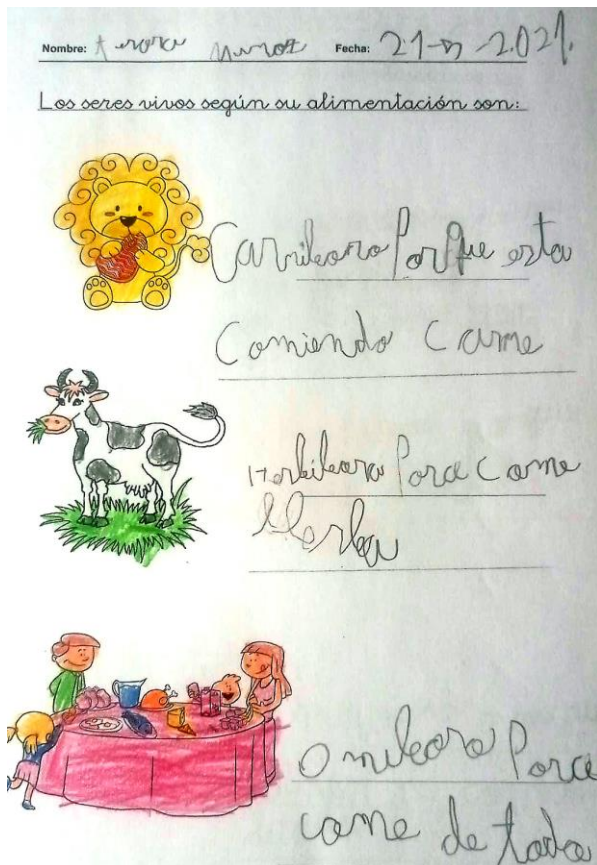 Nombre: Aurora Munoz Fecha: 21-5-2.021.
Los seres vivos según su alimentación son:
Carniboro Porque esta
Comiendo Carne
Herbiboro Porce Come
Llerba
Omniboro Porce
come de todo